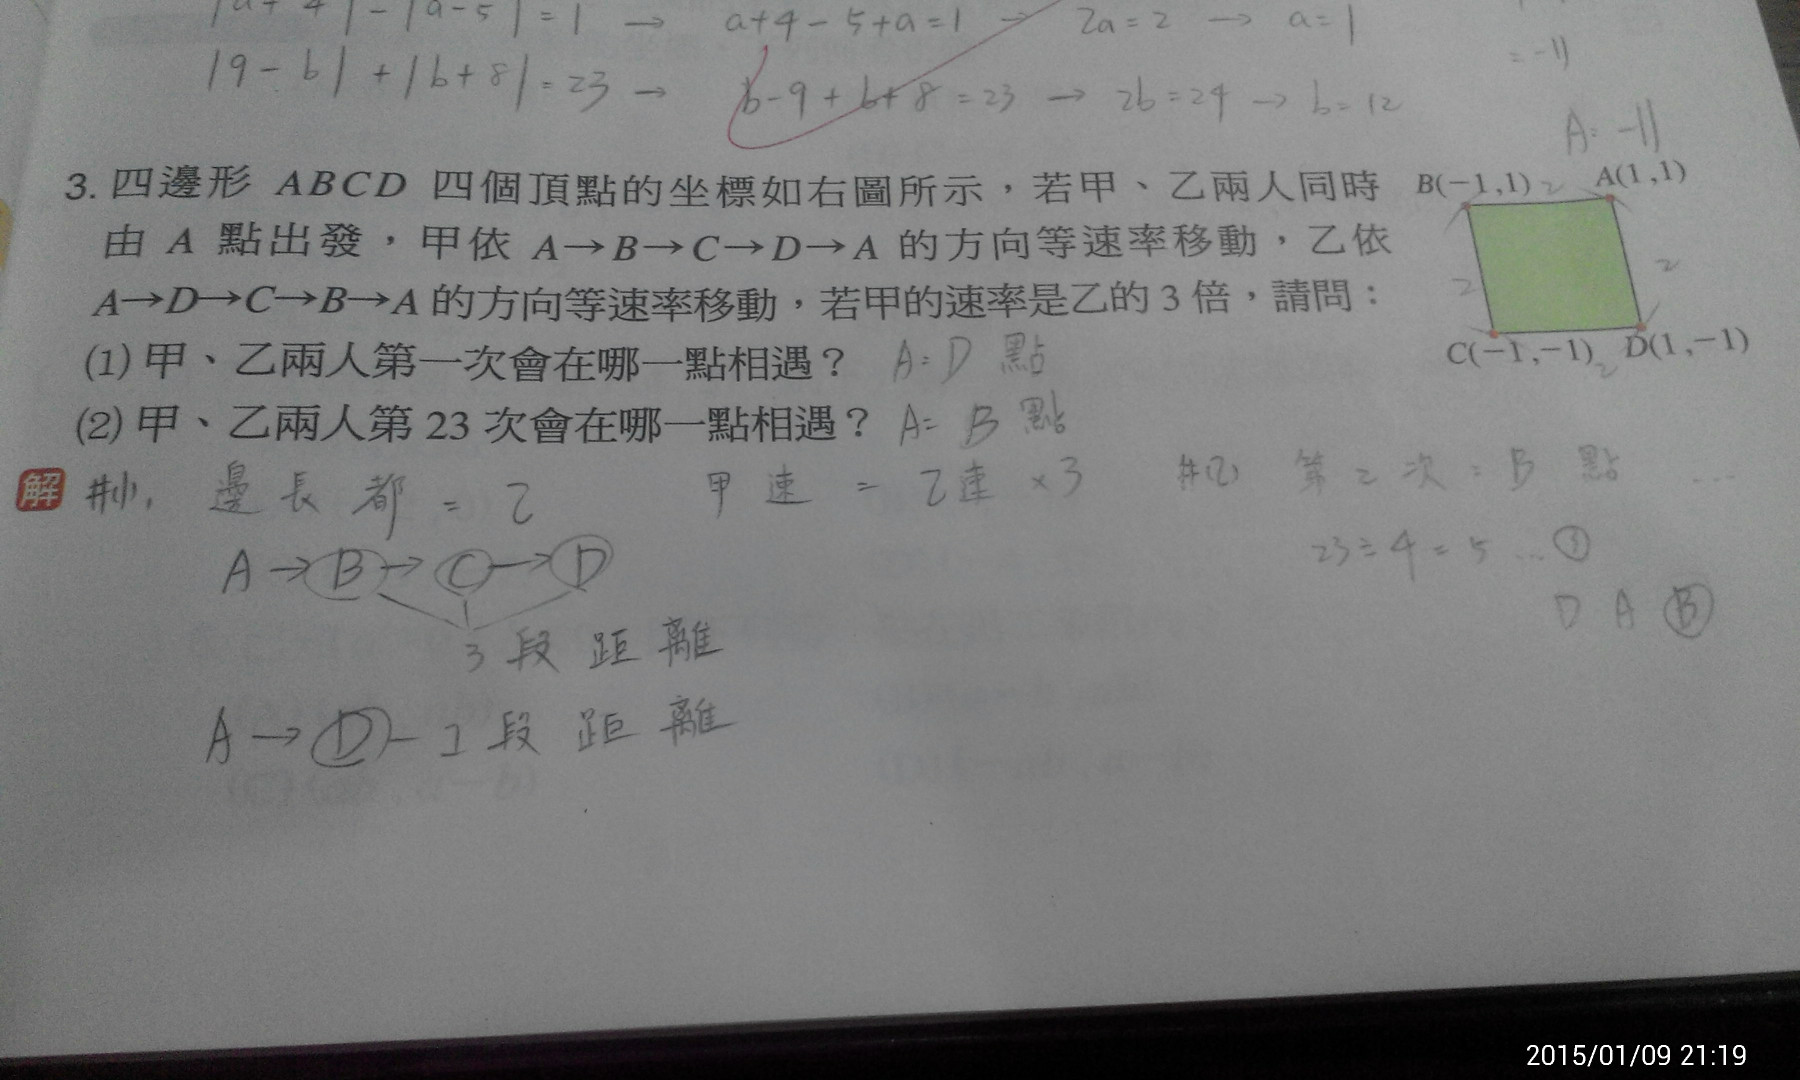 |a+4| - |a-5| = 1 → a+4-5+a=1 → 2a=2 → a=1
= -11
|9-b| + |b+8| = 23 → b-9+b+8=23 → 2b=24 → b=12
A: -11
3. 四邊形 ABCD 四個頂點的坐標如右圖所示，若甲、乙兩人同時
由 A 點出發，甲依 A→B→C→D→A 的方向等速率移動，乙依
A→D→C→B→A 的方向等速率移動，若甲的速率是乙的 3 倍，請問：
(1) 甲、乙兩人第一次會在哪一點相遇？ A: D 點
(2) 甲、乙兩人第 23 次會在哪一點相遇？ A= B 點
B(-1,1) 2 A(1,1)
2 2
C(-1,-1) 2 D(1,-1)
解 #(1), 邊長都 = 2 甲速 = 乙速 ×3 #(2) 第2次: B 點 ...
A→B→C→D
23÷4=5...③
3 段距離
D A B
A→D-1 段距離
2015/01/09 21:19